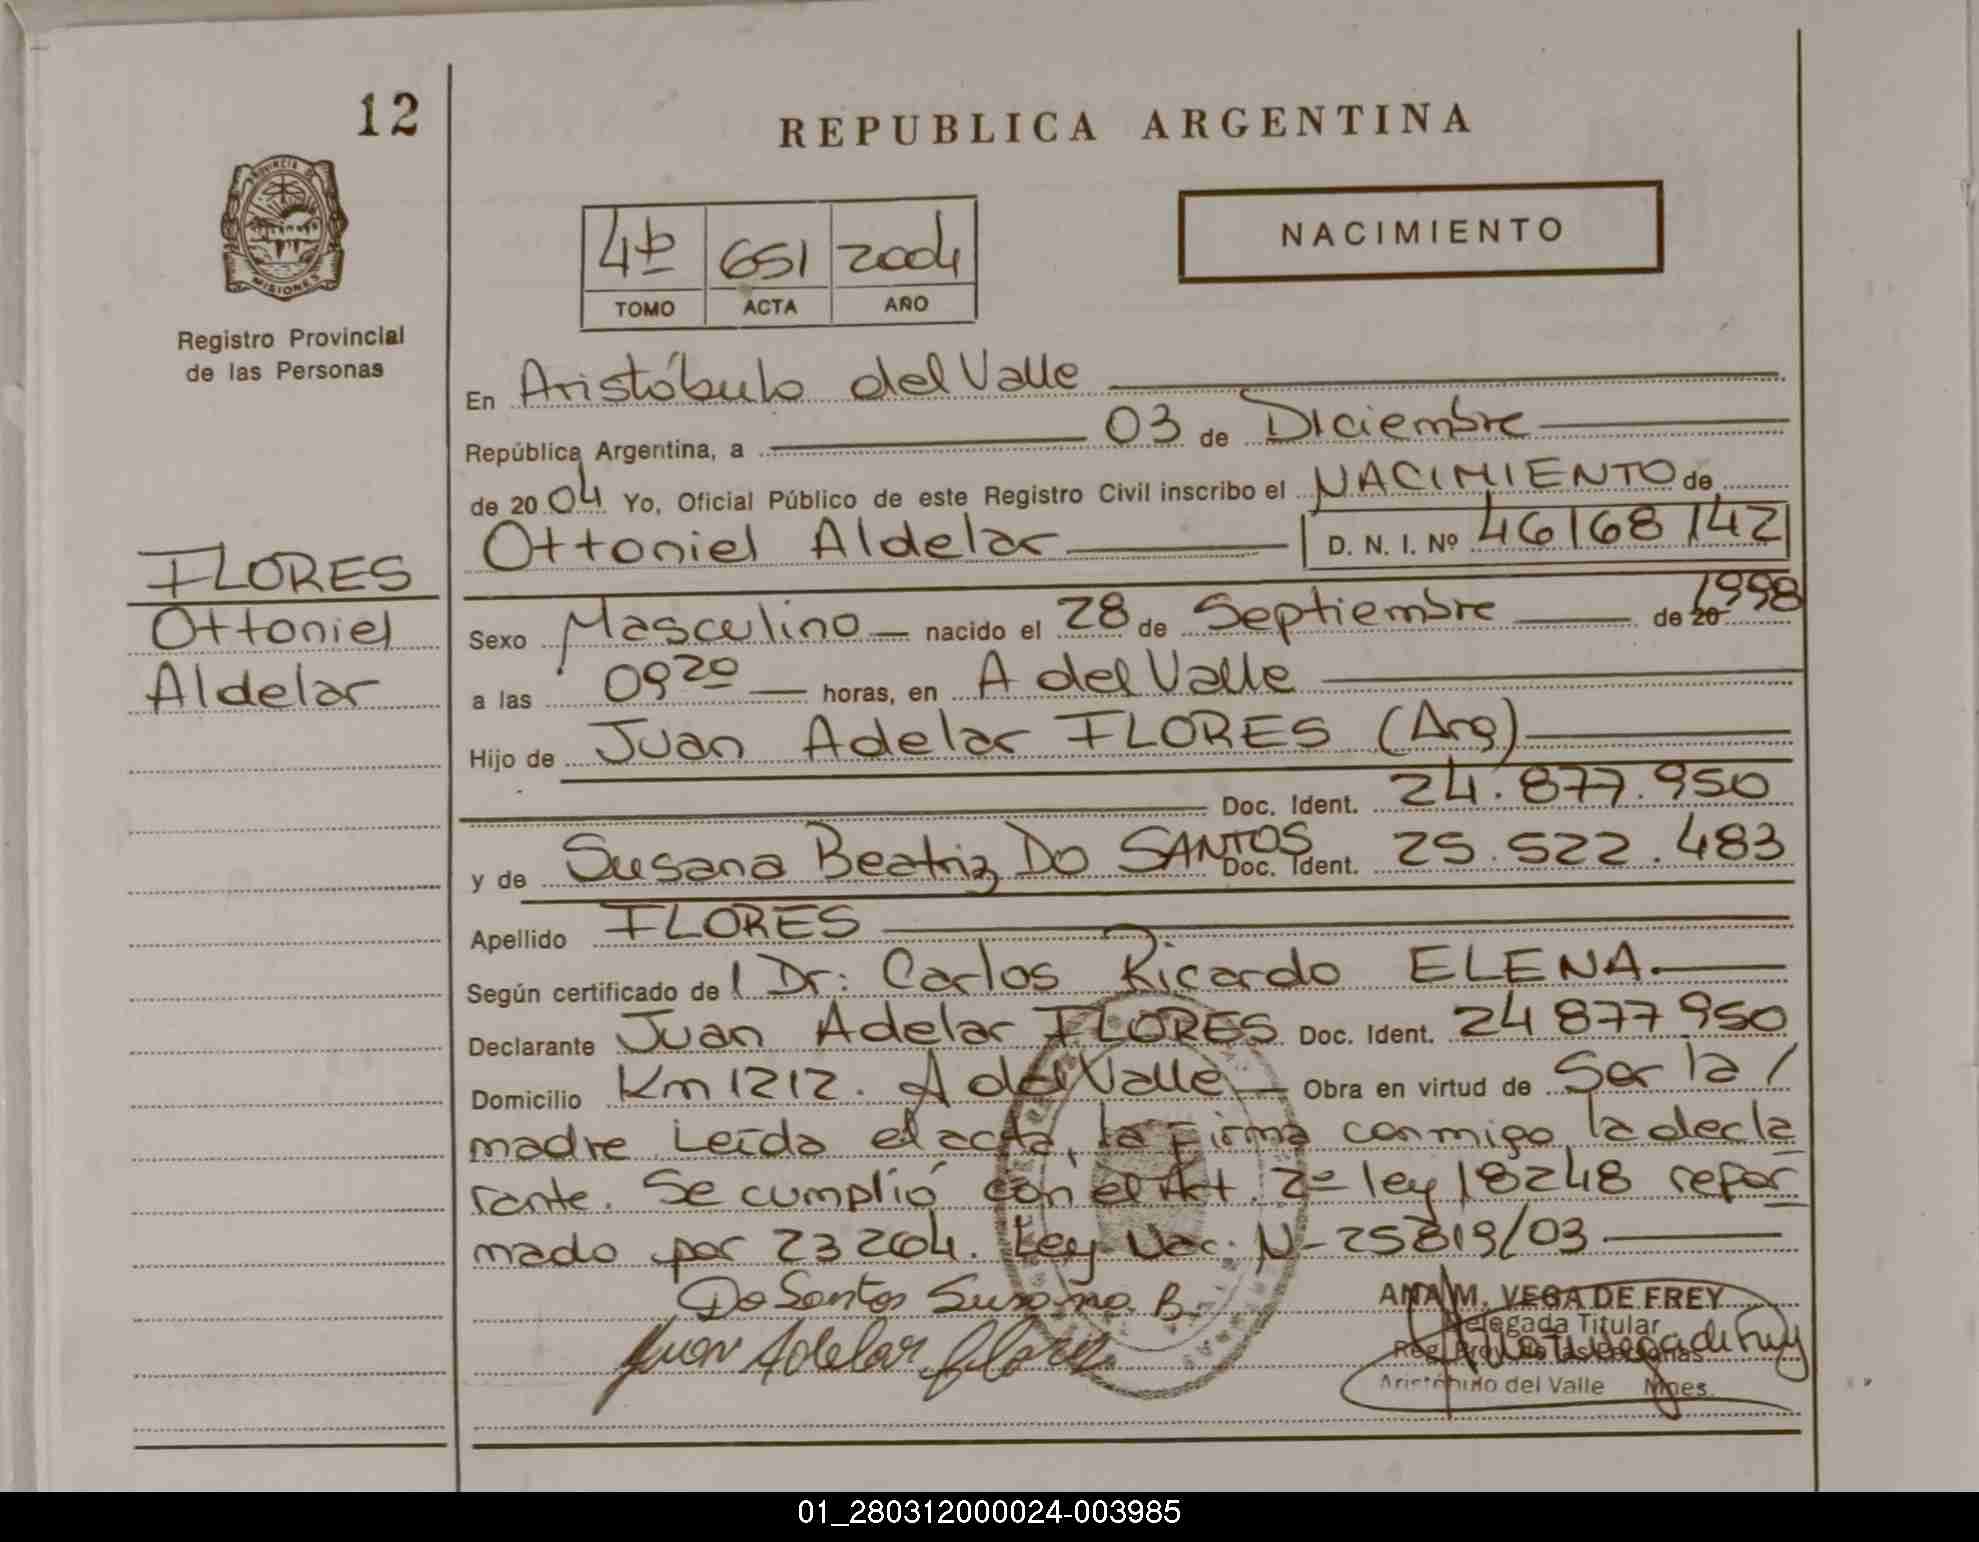 12
REPUBLICA ARGENTINA
PROVINCIA DE
MISIONES
Registro Provincial
de las Personas
4b 651 2004
TOMO ACTA AÑO
NACIMIENTO
En Aristóbulo del Valle
República Argentina, a 03 de Diciembre
de 2004 Yo, Oficial Público de este Registro Civil inscribo el NACIMIENTO de
Ottoniel Aldelar D. N. I. Nº 46168142
FLORES
Ottoniel
Aldelar
Sexo Masculino nacido el 28 de Septiembre de 20 1998
a las 09 20 horas, en A del Valle
Hijo de Juan Adelar FLORES (Arg)
Doc. Ident. 24.877.950
y de Susana Beatriz DO SANTOS Doc. Ident. 25.522.483
Apellido FLORES
Según certificado de / Dr: Carlos Ricardo ELENA.
Declarante Juan Adelar FLORES Doc. Ident. 24877950
Domicilio Km 1212. A del Valle Obra en virtud de Ser la /
madre Leída el acta, la firma conmigo la decla
rante. Se cumplió con el Art. 2º ley 18248 refor
mado por 23264. Ley Nac. Nº 25819/03
Do Santos Susana B.
Juan Adelar Flores
ANA M. VEGA DE FREY
Delegada Titular
Reg. Prov. de las Personas
Aristóbulo del Valle Mnes.
01_280312000024-003985